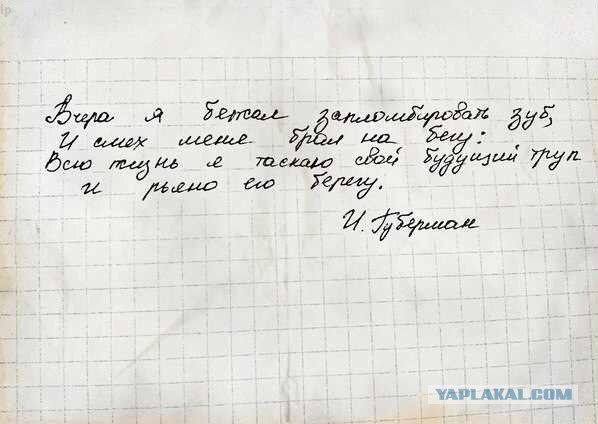 Вчера я бежал запломбировать зуб,
И смех меня брал на бегу:
Всю жизнь я таскаю свой будущий труп
И рьяно его берегу.
И. Губерман
YAPLAKAL.COM